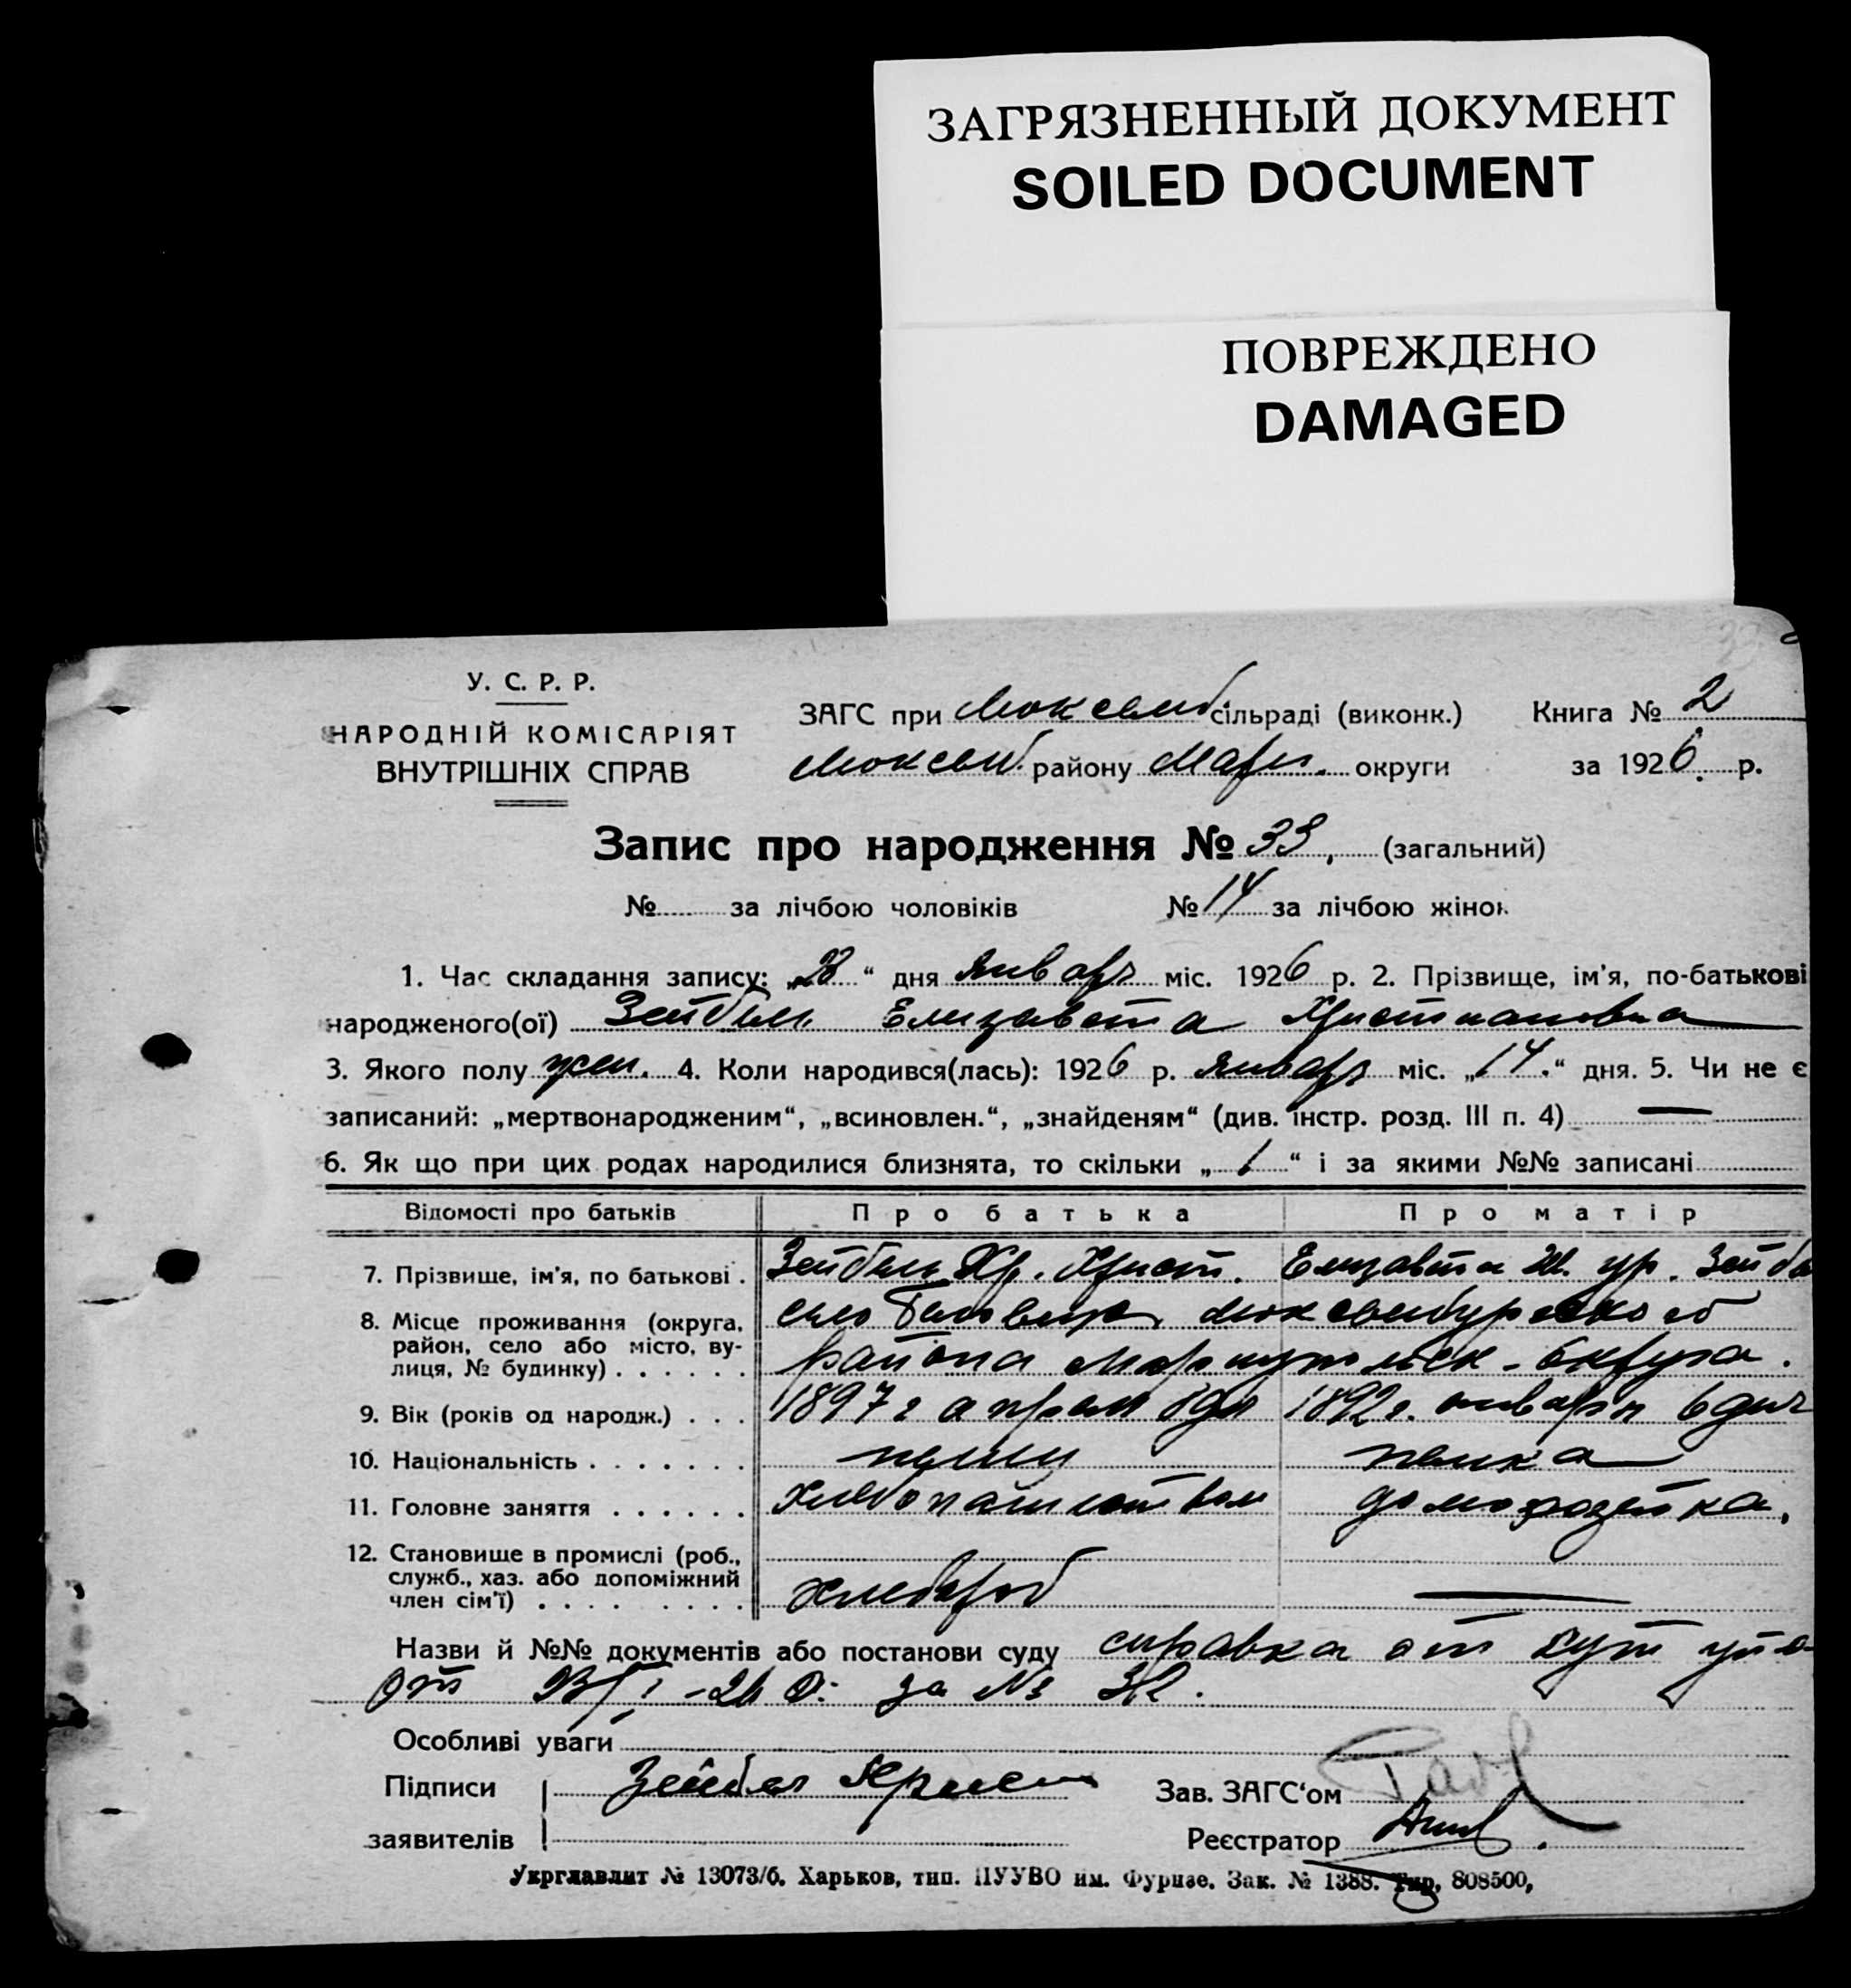 ЗАГРЯЗНЕННЫЙ ДОКУМЕНТ
SOILED DOCUMENT
ПОВРЕЖДЕНО
DAMAGED
У. С. Р. Р.
НАРОДНІЙ КОМІСАРІЯТ
ВНУТРІШНІХ СПРАВ
ЗАГС при Люксемб сільраді (виконк.) Книга № 2
Люксемб. району Мари. округи за 1926 р.
Запис про народження № 33, (загальний)
№ за лічбою чоловіків № 14 за лічбою жінок
1. Час складання запису: „28“ дня января міс. 1926 р. 2. Прізвище, ім'я, по-батькові
народженого(ої) Зейбель Елизавета Християновна
3. Якого полу жен. 4. Коли народився(лась): 1926 р. января міс. „14.“ дня. 5. Чи не є
записаний: „мертвонародженим“, „всиновлен.“, „знайденям“ (див. інстр. розд. III п. 4) —
6. Як що при цих родах народилися близнята, то скільки „1“ і за якими №№ записані
Відомості про батьків Про батька Про матір
7. Прізвище, ім'я, по батькові . Зейбель Хр. Христ. Елизавета ур. Зейбе
8. Місце проживання (округа, село люксембургского
район, село або місто, ву-
лиця, № будинку) . . . . . . района Мариупольск. округа.
9. Вік (років од народж.) . . . 1897 г апреля 8 дн 1892 г. января 6 дня
10. Національність . . . . . . . немец немка
11. Головне заняття . . . . . . Хлебопашеством домохозяйка.
12. Становище в промислі (роб.,
служб., хаз. або допоміжний
член сім'ї) . . . . . . . . . хлебороб —
Назви й №№ документів або постанови суду справка от
от за №
Особливі уваги
Підписи Зейбел Христ Зав. ЗАГС'ом
заявителів Реєстратор
Укрглавлит № 13073/б. Харьков, тип. ПУУВО им. Фрунзе. Зак. № 1388. Тир. 808500,